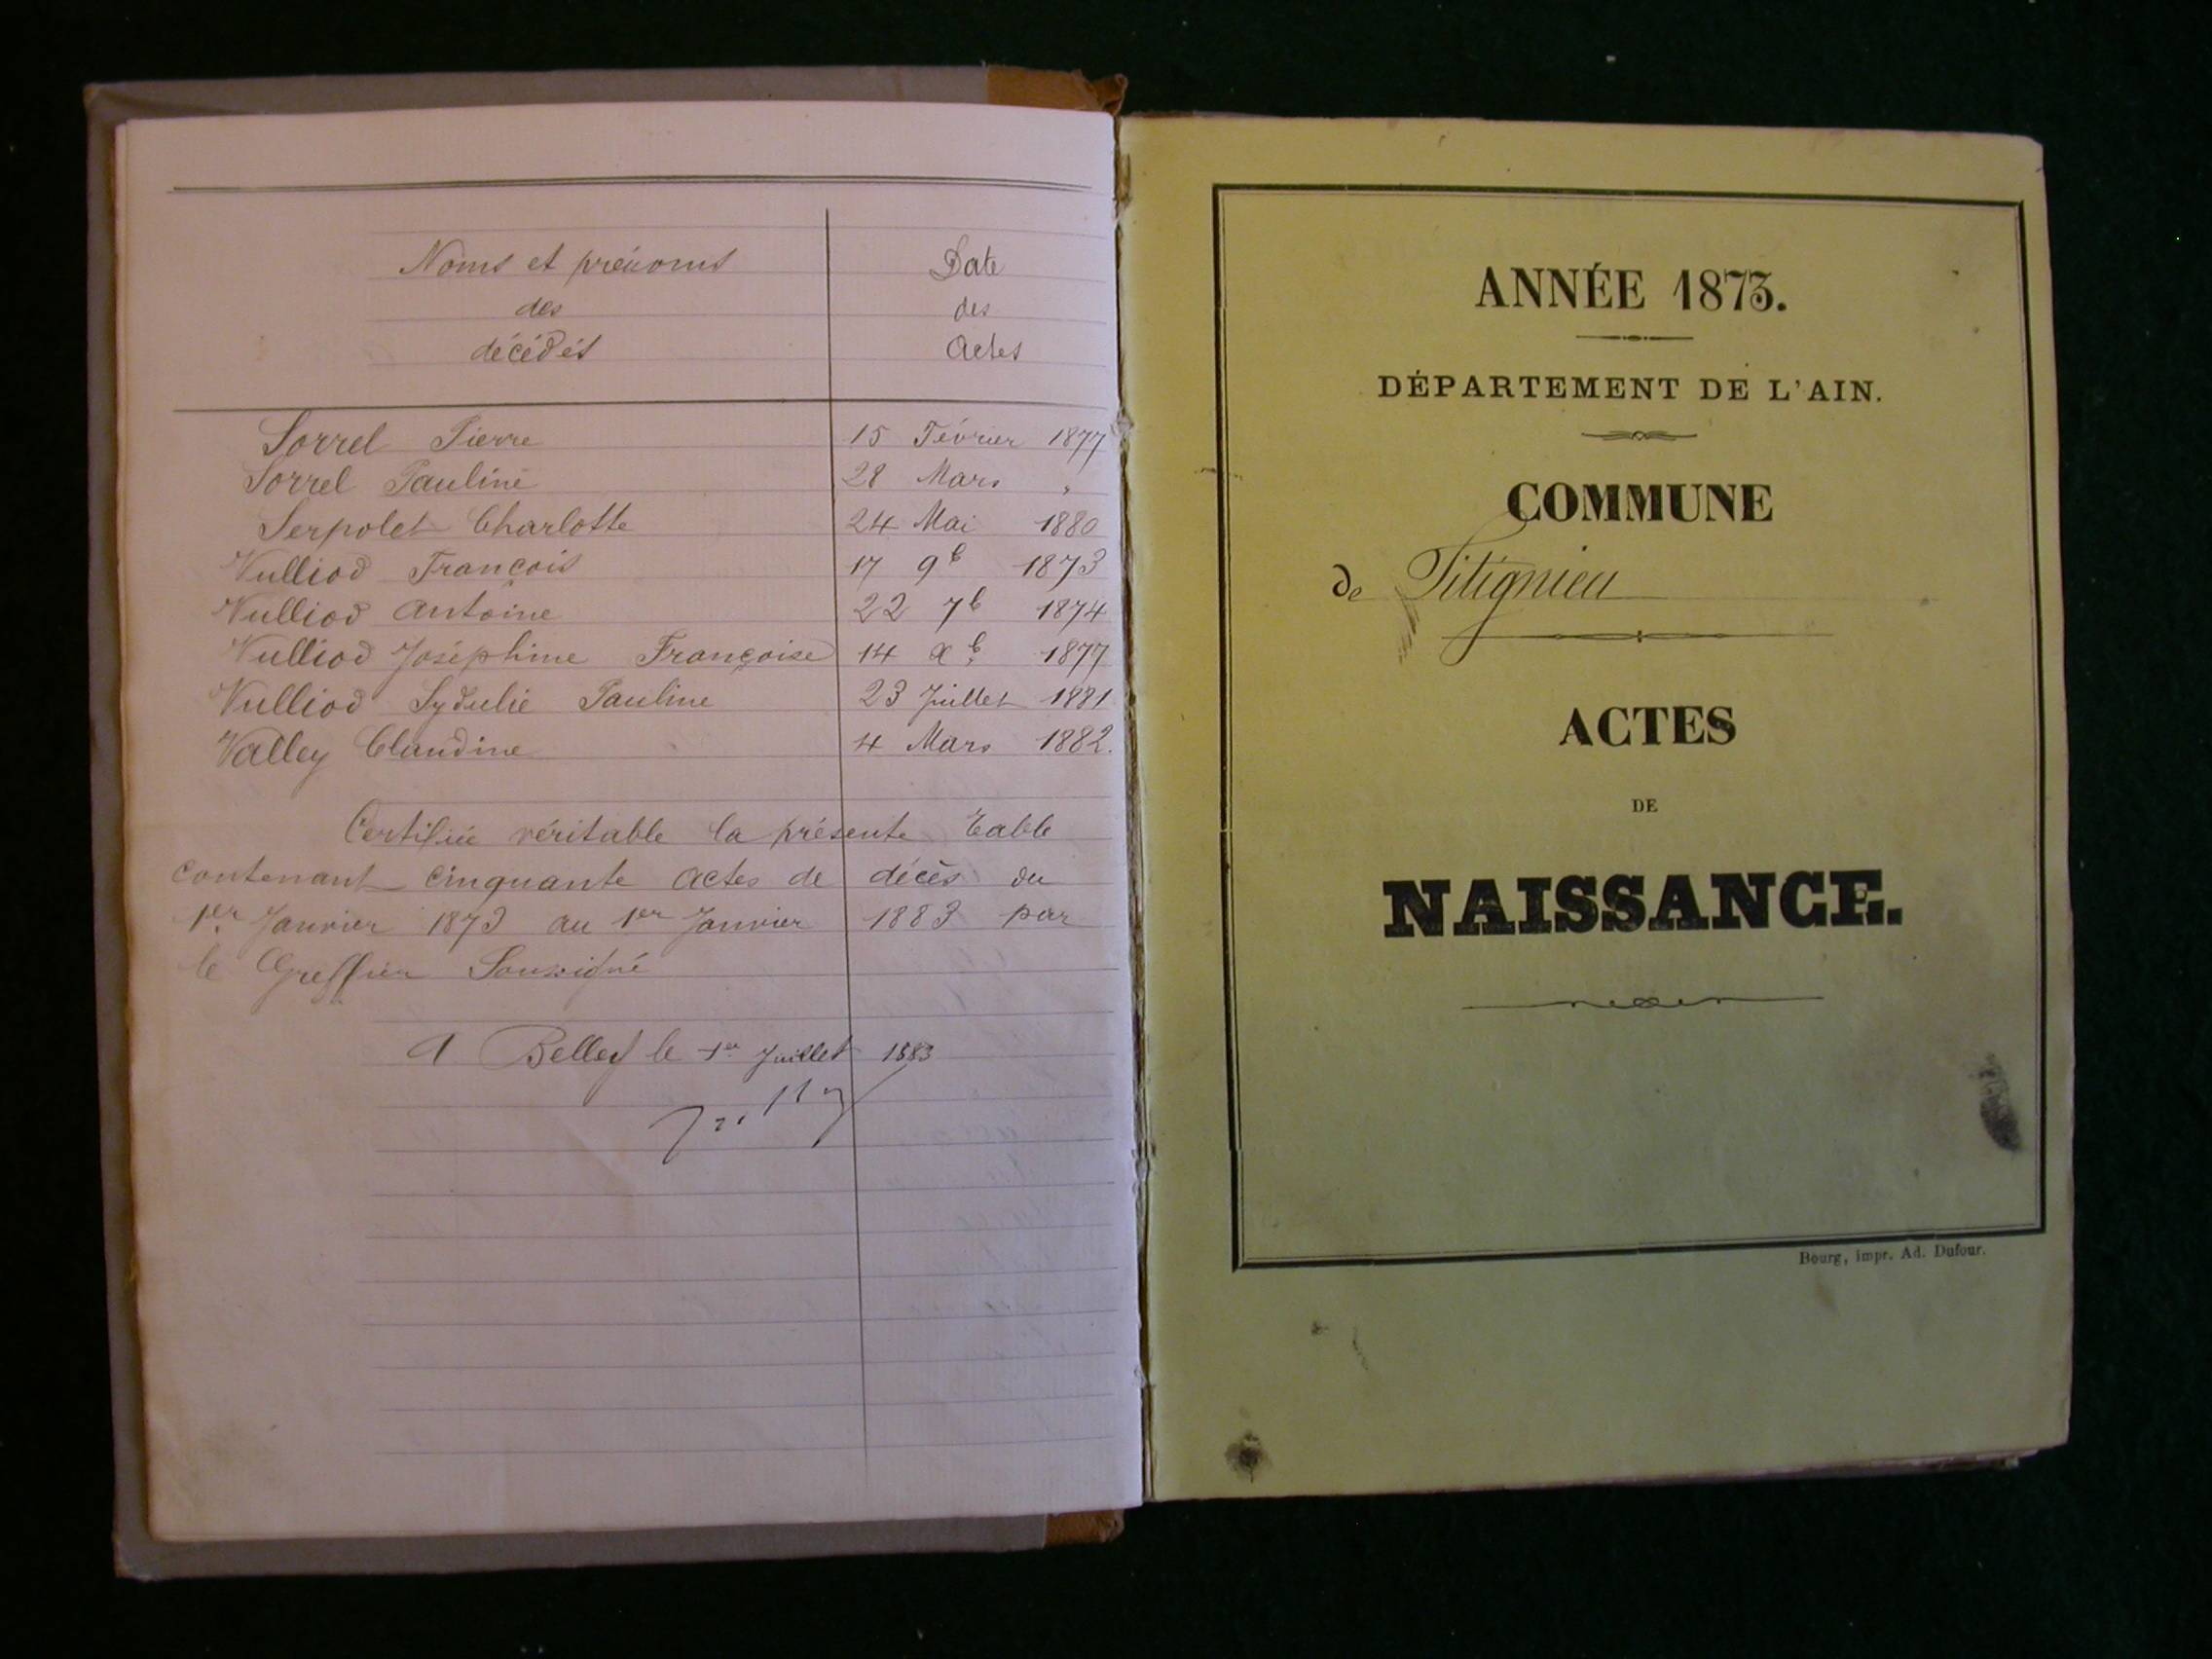 Noms et prénoms
des
décédés
Date
des
Actes
Sorrel Pierre 15 Février 1877
Sorrel Pauline 28 Mars "
Serpolet Charlotte 24 Mai 1880
Vulliod François 17 9b 1873
Vulliod Antoine 22 7b 1874
Vulliod Joséphine Françoise 14 Xb 1877
Vulliod Sydulie Pauline 23 Juillet 1881
Valley Claudine 4 Mars 1882.
Certifiée véritable la présente table
contenant cinquante actes de décès du
1er Janvier 1873 au 1er Janvier 1883 par
le Greffier Soussigné
A Belley le 1er Juillet 1883
ANNÉE 1873.
DÉPARTEMENT DE L'AIN.
COMMUNE
de Pitignieu
ACTES
DE
NAISSANCE.
Bourg, impr. Ad. Dufour.